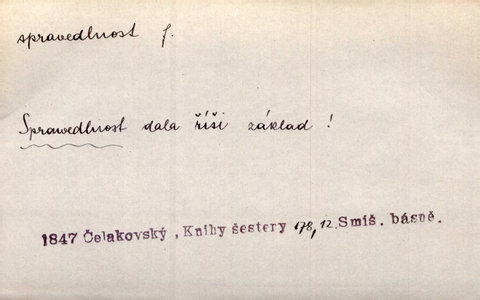 spravedlnost f.
Sprawedlnost dala říši základ !
1847 Čelakovský, Knihy šestery 178,12. Smíš. básně.